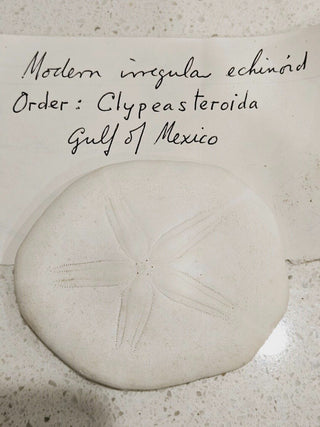 Modern irregular echinoid
Order: Clypeasteroida
Gulf of Mexico